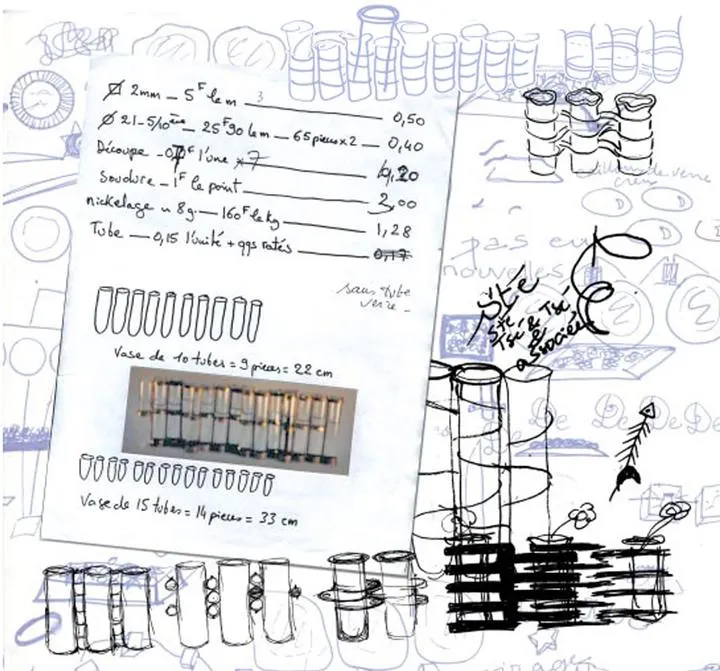 ⌀ 2mm — 5F le m — 0,50
⌀ 21-5/10ème — 25F90 le m — 65 pieces x2 — 0,40
Découpe — l'une x 7
Soudure — 1F le point — 3,00
nickelage ~ 8g. — 160F le kg — 1,28
Tube — 0,15 l'unité + qqs ratés — 0,17
sans tube
verre -
Vase de 10 tubes = 9 pieces = 22 cm
Vase de 15 tubes = 14 pieces = 33 cm
de verre
D D
pas eu
nouvelles
Sté
Sté
Tsé & Tsé
&
associées
De De De De